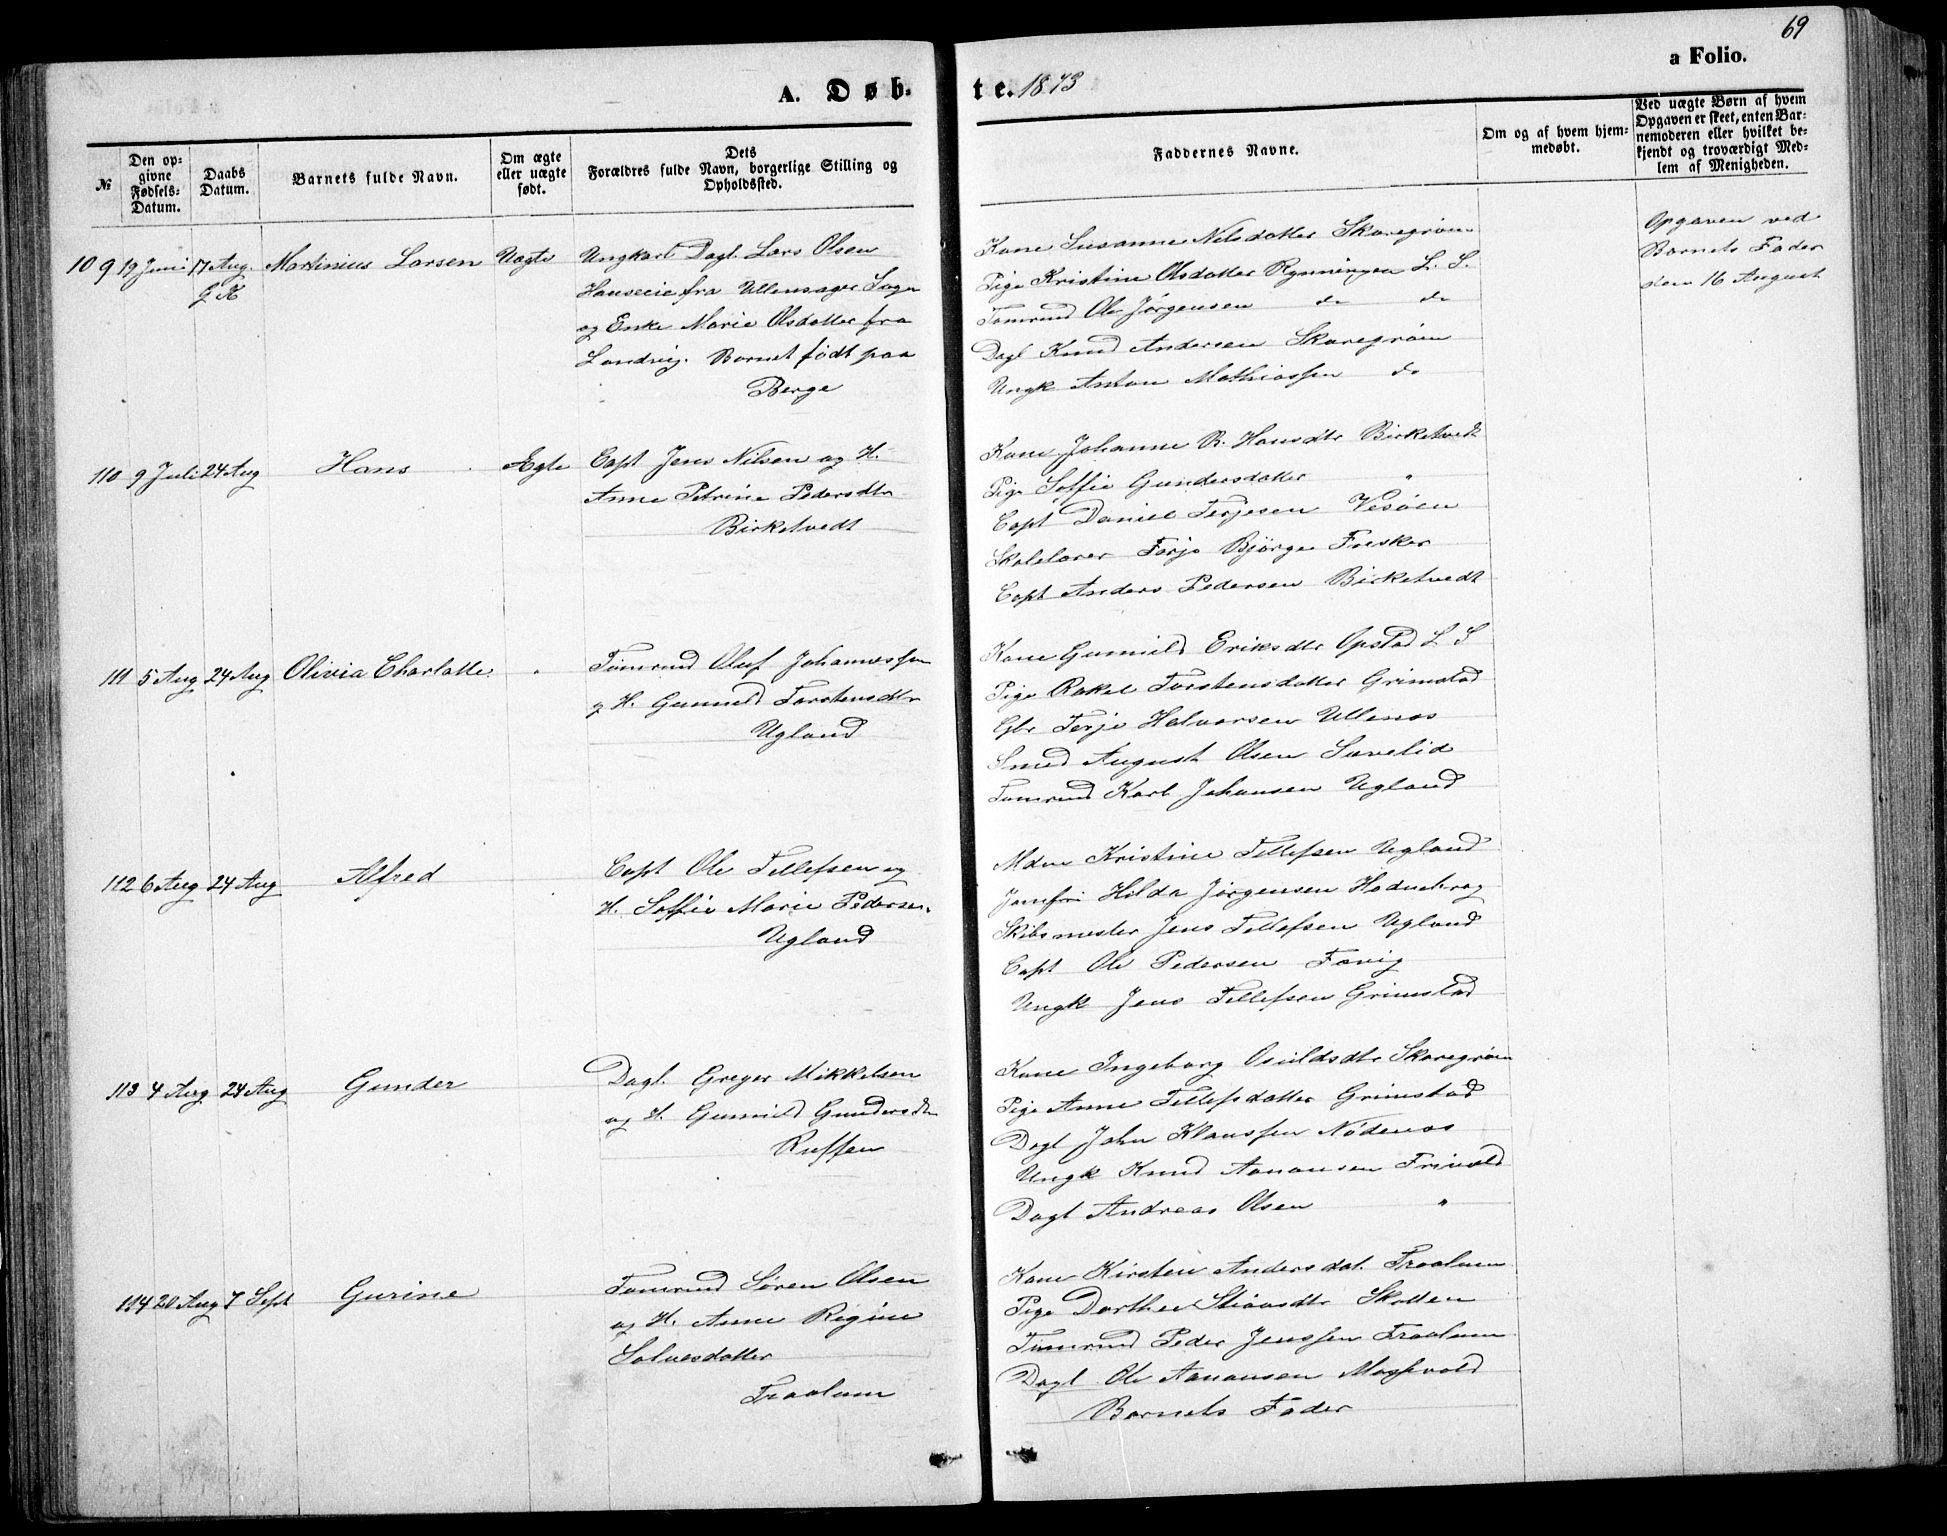 69
a Folio.
A. Døb-
te. 1873
№
Den op-
givne
Fødsels-
Datum.
Daabs
Datum.
Barnets fulde Navn.
Om ægte
eller uægte
født.
Dets
Forældres fulde Navn, borgerlige Stilling og
Opholdssted.
Faddernes Navne.
Om og af hvem hjem-
medøbt.
Ved uægte Børn af hvem
Opgaven er skeet, enten Bar-
nemoderen eller hvilket be-
kjendt og troværdigt Med-
lem af Menigheden.
109 19 Juni 17 Aug. Martinius Larsen Uægte Ungkarl Dagl. Lars Olsen
G K
Hanseeie fra Ullensager Sogn
og Enke Marie Olsdatter fra
Landvig. Barnet født paa
Berge
Kone Susanne Nilsdatter Skaregrøm
Pige Kristine Olsdatter Rynningen L. S.
Tømrmd Ole Jørgensen do do
Dagl Knud Andersen Skaregrøm
Ungk Anton Mathiassen do
Opgaven ved
Barnets Fader
den 16 August
110 9 Juli 24 Aug Hans Ægte Capt Jens Nilsen og H.
Anne Petrine Pedersdtr
Birketvedt
Kone Johanne B. Hansdtr Birketvedt
Pige Soffie Gundersdatter "
Capt Daniel Terjesen Vesøen
Skolelærer Terje Bjørge Fresker
Capt Anders Pedersen Birketvedt
111 5 Aug 24 Aug Olivia Charlotte " Tømrmd Oluf Johannessen
og H. Gunnild Torstensdtr
Ugland
Kone Gunnild Eriksdtr Opstad L S
Pige Rakel Torstensdatter Grimstad
Gbr Terje Halvorsen Ullenæs
Smed August Olsen Sævelid
Tømrmd Karl Johansen Ugland
112 6 Aug 24 Aug Alfred Capt Ole Tellefsen og
H. Soffie Marie Pedersen
Ugland
Mdm Kristine Tellefsen Ugland
Jomfru Hilda Jørgensen Hodnebrog
Skibsmester Jens Tellefsen Ugland
Capt Ole Pedersen Fævig
Ungk Jens Tellefsen Grimstad
113 4 Aug 24 Aug Gunder Dagl. Greger Mikkelsen
og H. Gunnild Gundersdtr
Ruffen
Kone Ingeborg Osuldsdtr Skaregrøm
Pige Anne Tellefsdatter Grimstad
Dagl John Klaussen Nødenæs
Ungk Knud Aanonsen Frivold
Dagl Andreas Olsen "
114 20 Aug 7 Sept Gurine Tømrmd Søren Olsen
og H. Anne Regine
Salvesdatter
Traalum
Kone Kirsten Andersdat. Traalum
Pige Dorthea Stiansdtr Skotten
Tømrmd Peder Jenssen Traalum
Dagl Ole Aanonsen Moghvold
Barnets Fader